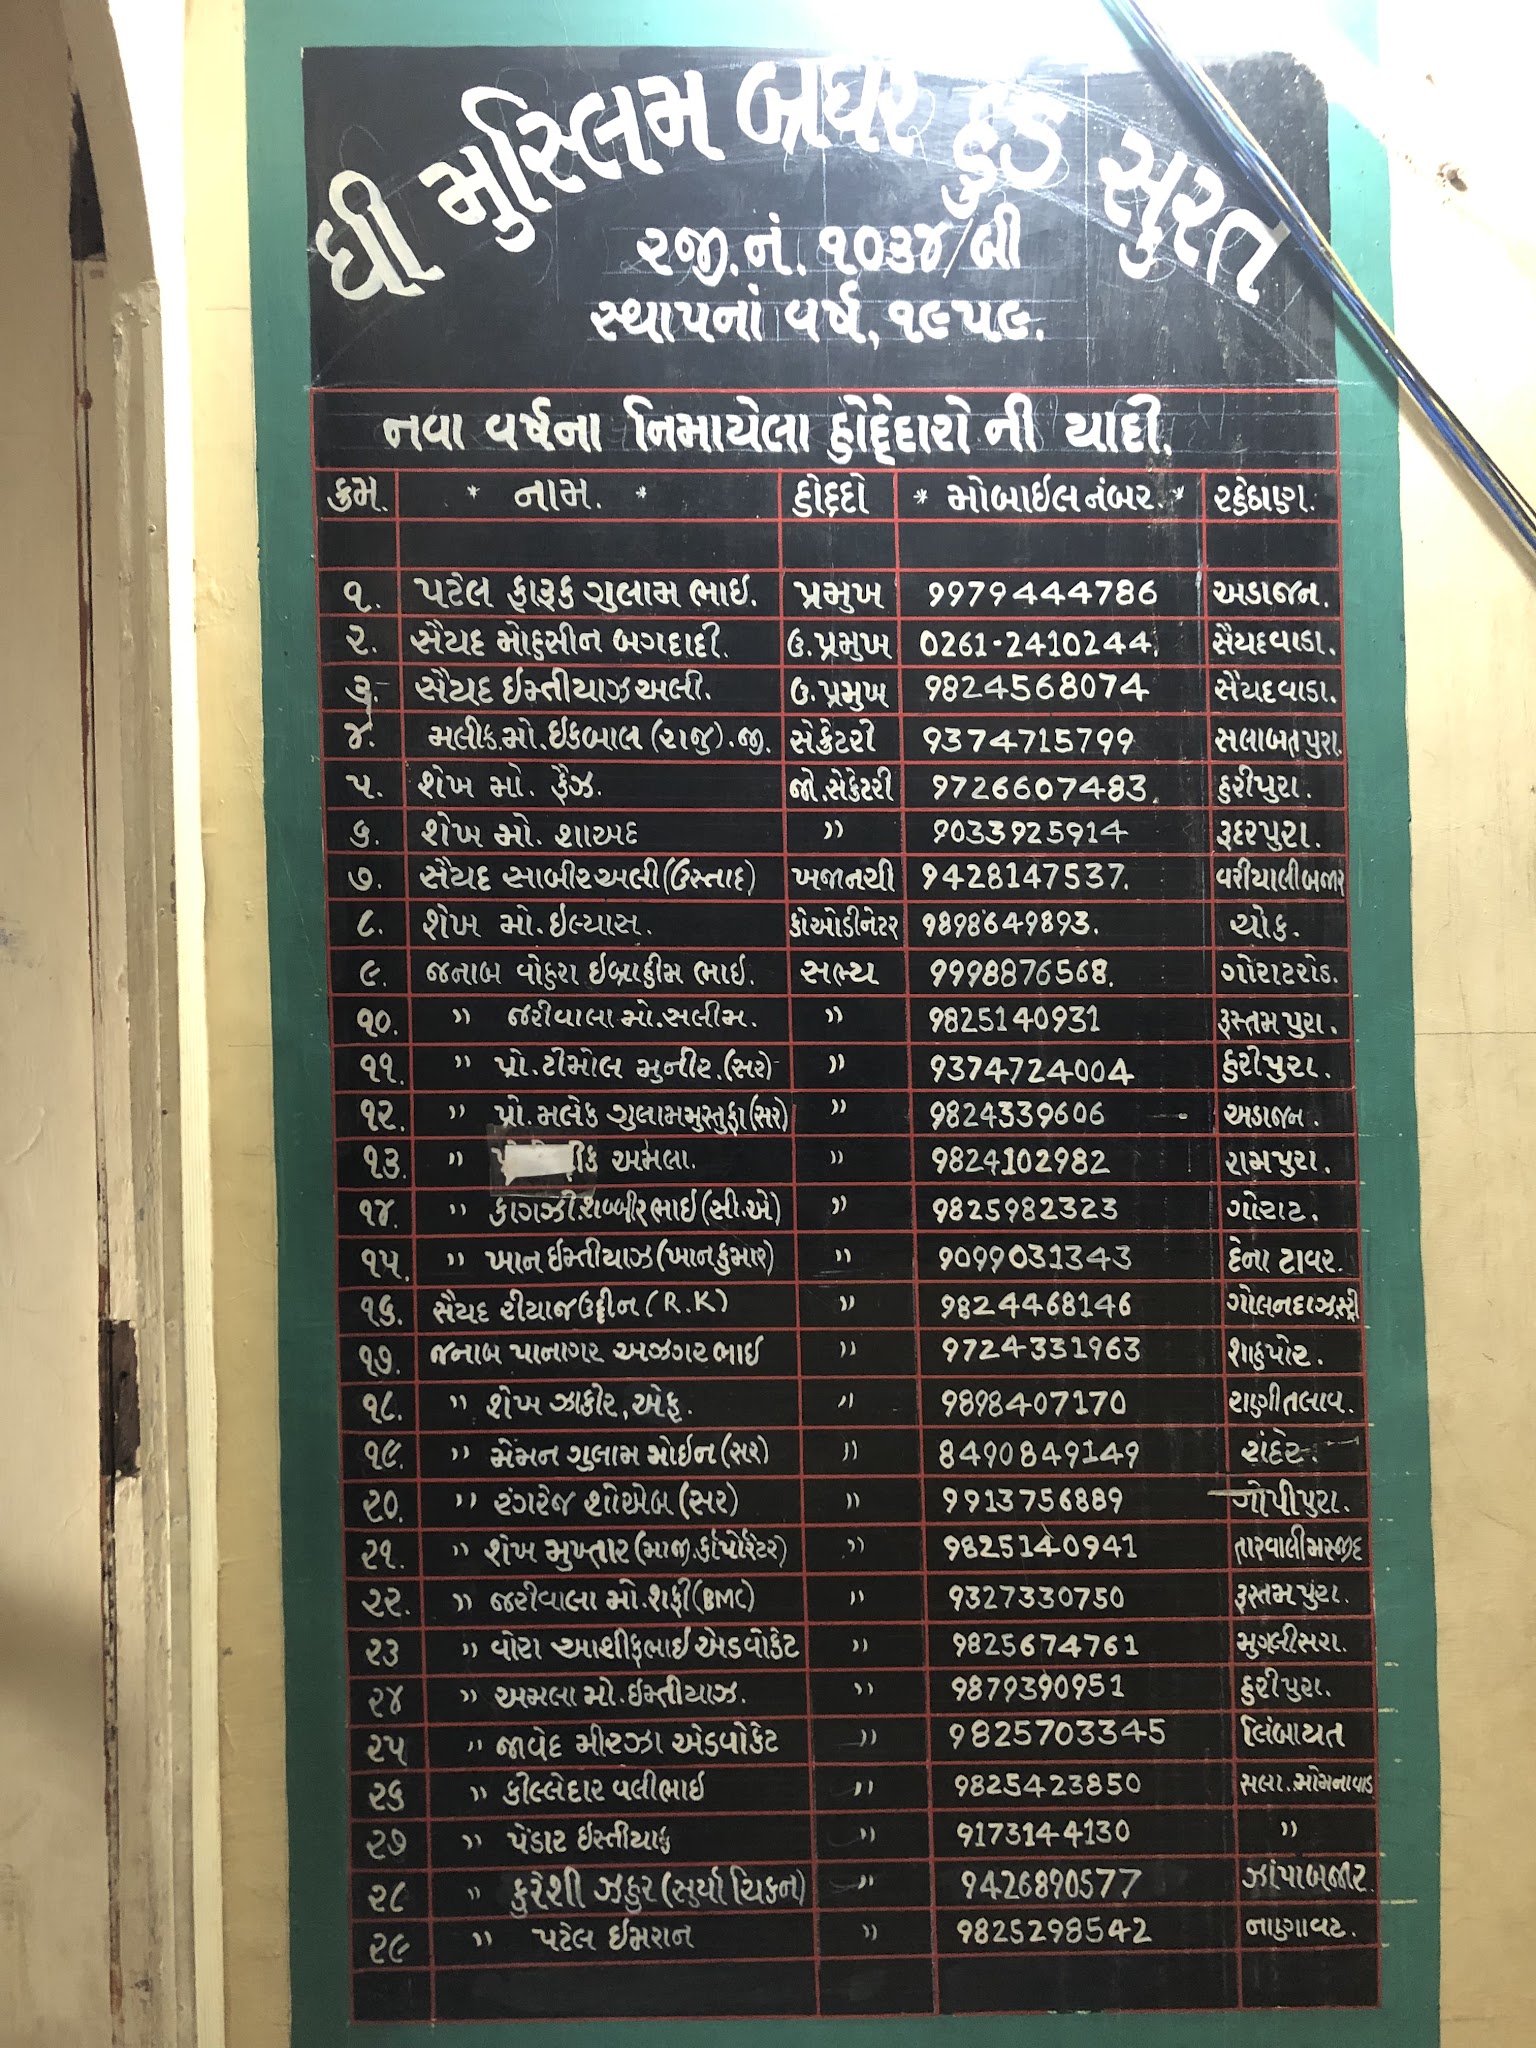 ધી મુસ્લિમ બ્રધર ફંડ સુરત
રજી.નં. ૧૦૩૪/બી
સ્થાપનાં વર્ષ, ૧૯૫૯.
નવા વર્ષના નિમાયેલા હોદ્દેદારો ની યાદી.
ક્રમ. * નામ. * હોદ્દો * મોબાઇલ નંબર. * રહેઠાણ.
૧. પટેલ ફારૂક ગુલામ ભાઇ. પ્રમુખ 9979444786 અડાજન.
૨. સૈયદ મોહસીન બગદાદી. ઉ.પ્રમુખ 0261-2410244. સૈયદવાડા.
૩. સૈયદ ઇમ્તીયાઝ અલી. ઉ.પ્રમુખ 9824568074 સૈયદવાડા.
૪. મલીક.મો.ઇકબાલ (રાજુ).જી. સેક્રેટરી 9374715799 સલાબતપુરા.
૫. શેખ મો. ફૈઝ. જો.સેક્રેટરી 9726607483. હરીપુરા.
૬. શેખ મો. શાઅદ " 9033925914 રૂદરપુરા.
૭. સૈયદ સાબીર અલી (ઉસ્તાદ) ખજાનચી 9428147537. વરીયાલી બજાર
૮. શેખ મો. ઇલ્યાસ. કોઓડીનેટર 9898649893. ચોક.
૯. જનાબ વોહરા ઇબ્રાહીમ ભાઇ. સભ્ય 9998876568. ગોરાટરોડ.
૧૦. " જરીવાલા મો.સલીમ. " 9825140931 રૂસ્તમપુરા.
૧૧. " પ્રો.ટીમોલ મુનીર.(સર) " 9374724004 હરીપુરા.
૧૨. " પ્રો.મલેક ગુલામમુસ્તુફા (સર) " 9824339606 અડાજન.
૧૩. " અમલા. " 9824102982 રામપુરા.
૧૪. " કાગઝી.શબ્બીરભાઇ (સી.એ) " 9825982323 ગોરાટ.
૧૫. " ખાન ઇમ્તીયાઝ (ખાન કુમાર) " 9099031343 દેના ટાવર.
૧૬. સૈયદ રીયાજઉદ્દીન (R.K) " 9824468146 ગોલનદાઝસ્ટ્રી
૧૭. જનાબ પાનાગર અઝગર ભાઇ " 9724331963 શાહપોર.
૧૮. " શેખ ઝાકીર, એફ. " 9898407170 રાણીતલાવ.
૧૯. " મેમન ગુલામ મોઇન (સર) " 8490849149 રાંદેર.
૨૦. " રંગરેજ શોએબ (સર) " 9913756889 ગોપીપુરા.
૨૧. " શેખ મુખ્તાર (માજી.કોર્પોરેટર) " 9825140941 તારવાલી મસ્જીદ
૨૨. " જરીવાલા મો.શફી (BMC) " 9327330750 રૂસ્તમ પુરા.
૨૩ " વોરા આશીફભાઇ એડવોકેટ " 9825674761 મુગલીસરા.
૨૪ " અમલા મો.ઇમ્તીયાઝ. " 9879390951 હરીપુરા.
૨૫ " જાવેદ મીરઝા એડવોકેટ " 9825703345 લિંબાયત
૨૬ " કીલ્લેદાર વલીભાઇ " 9825423850 સલા. મોમનાવાડ
૨૭ " પેંડાર ઇસ્તીયાક " 9173144130 "
૨૮ " કુરેશી ઝહુર (સુર્યા ચિકન) " 9426890577 ઝાંપાબજાર.
૨૯ " પટેલ ઇમરાન " 9825298542 નાણાવટ.